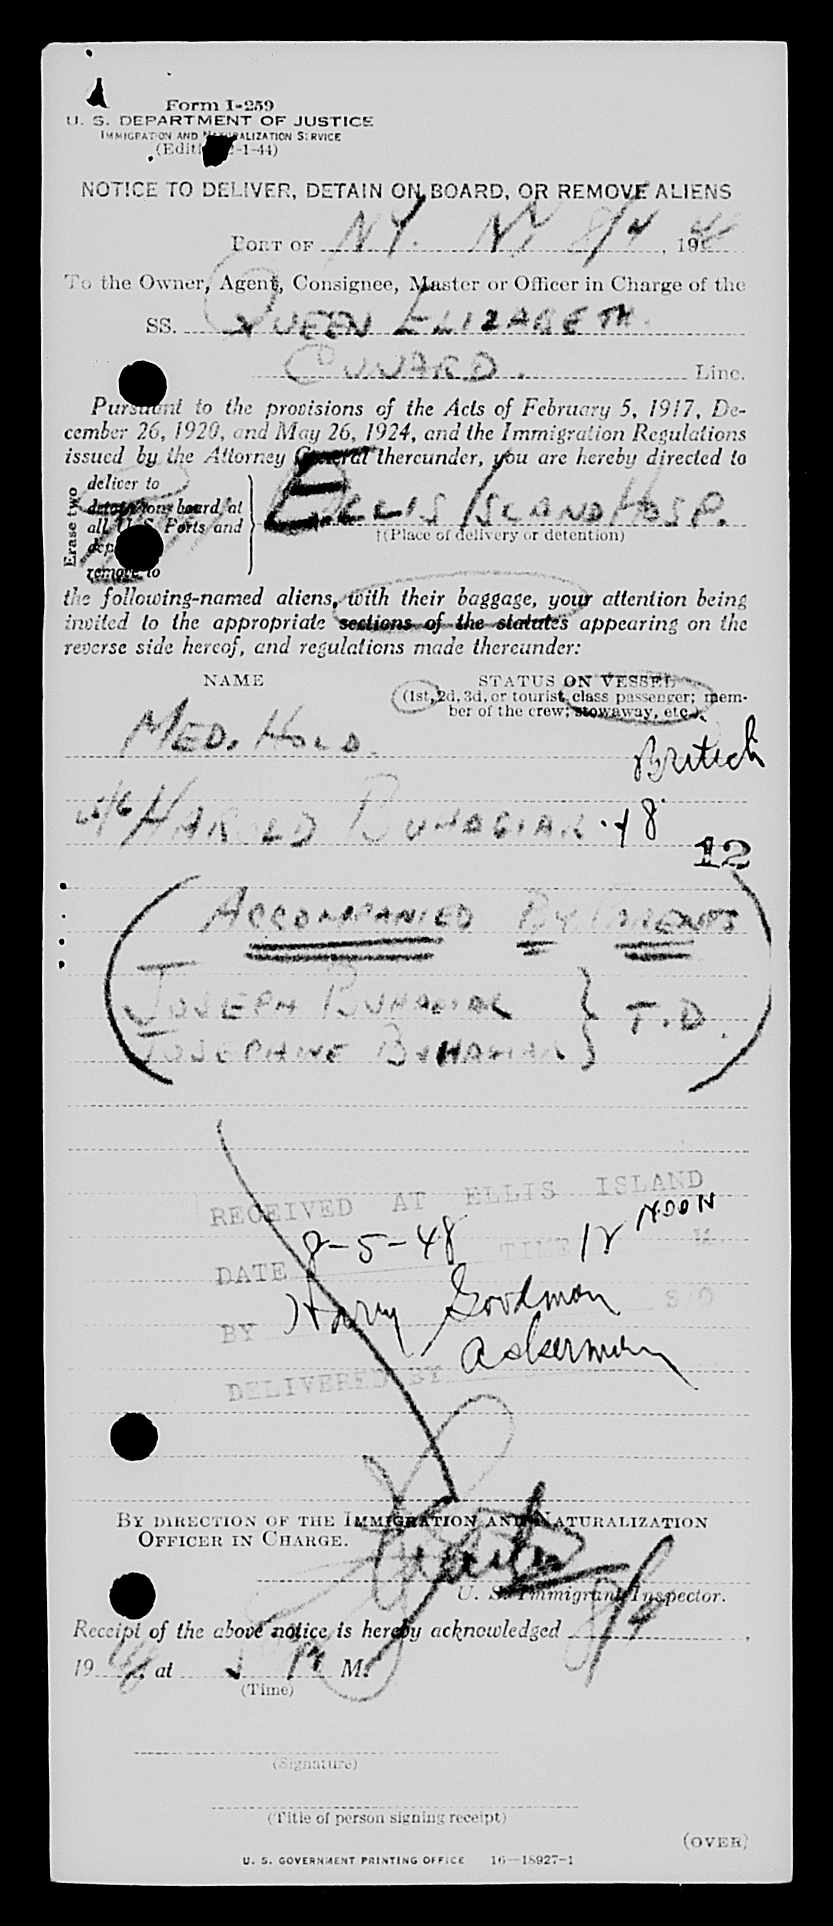 Form I-259
U. S. DEPARTMENT OF JUSTICE
IMMIGRATION AND NATURALIZATION SERVICE
NOTICE TO DELIVER, DETAIN ON BOARD, OR REMOVE ALIENS
PORT OF N.Y. NY 8/4, 1948
To the Owner, Agent, Consignee, Master or Officer in Charge of the
SS. QUEEN ELIZABETH
CUNARD. Line.
Pursuant to the provisions of the Acts of February 5, 1917, De-
cember 26, 1920, and May 26, 1924, and the Immigration Regulations
issued by the Attorney General thereunder, you are hereby directed to
Erase two
deliver to
detain on board at
all U. S. Ports and
remove to
ELLIS ISLAND HOSP.
†(Place of delivery or detention)
the following-named aliens, with their baggage, your attention being
invited to the appropriate sections of the statutes appearing on the
reverse side hereof, and regulations made thereunder:
NAME STATUS ON VESSEL
(1st, 2d, 3d, or tourist class passenger; mem-
ber of the crew; stowaway, etc.)
MED. HOLD.
British
HAROLD BUHAGIAR
12
ACCOMPANIED BY PARENTS
JOSEPH BUHAGIAR } T.D.
JOSEPHINE BUHAGIAR
RECEIVED AT ELLIS ISLAND
DATE 8-5-48 TIME 12 NOON M
BY Harry Goodman S/O
Askerman
DELIVERED BY
BY DIRECTION OF THE IMMIGRATION AND NATURALIZATION
OFFICER IN CHARGE.
U. S. Immigrant Inspector.
Receipt of the above notice is hereby acknowledged 8/4,
1948, at M.
(Time)
(Signature)
(Title of person signing receipt)
(OVER)
U. S. GOVERNMENT PRINTING OFFICE 16—18927-1